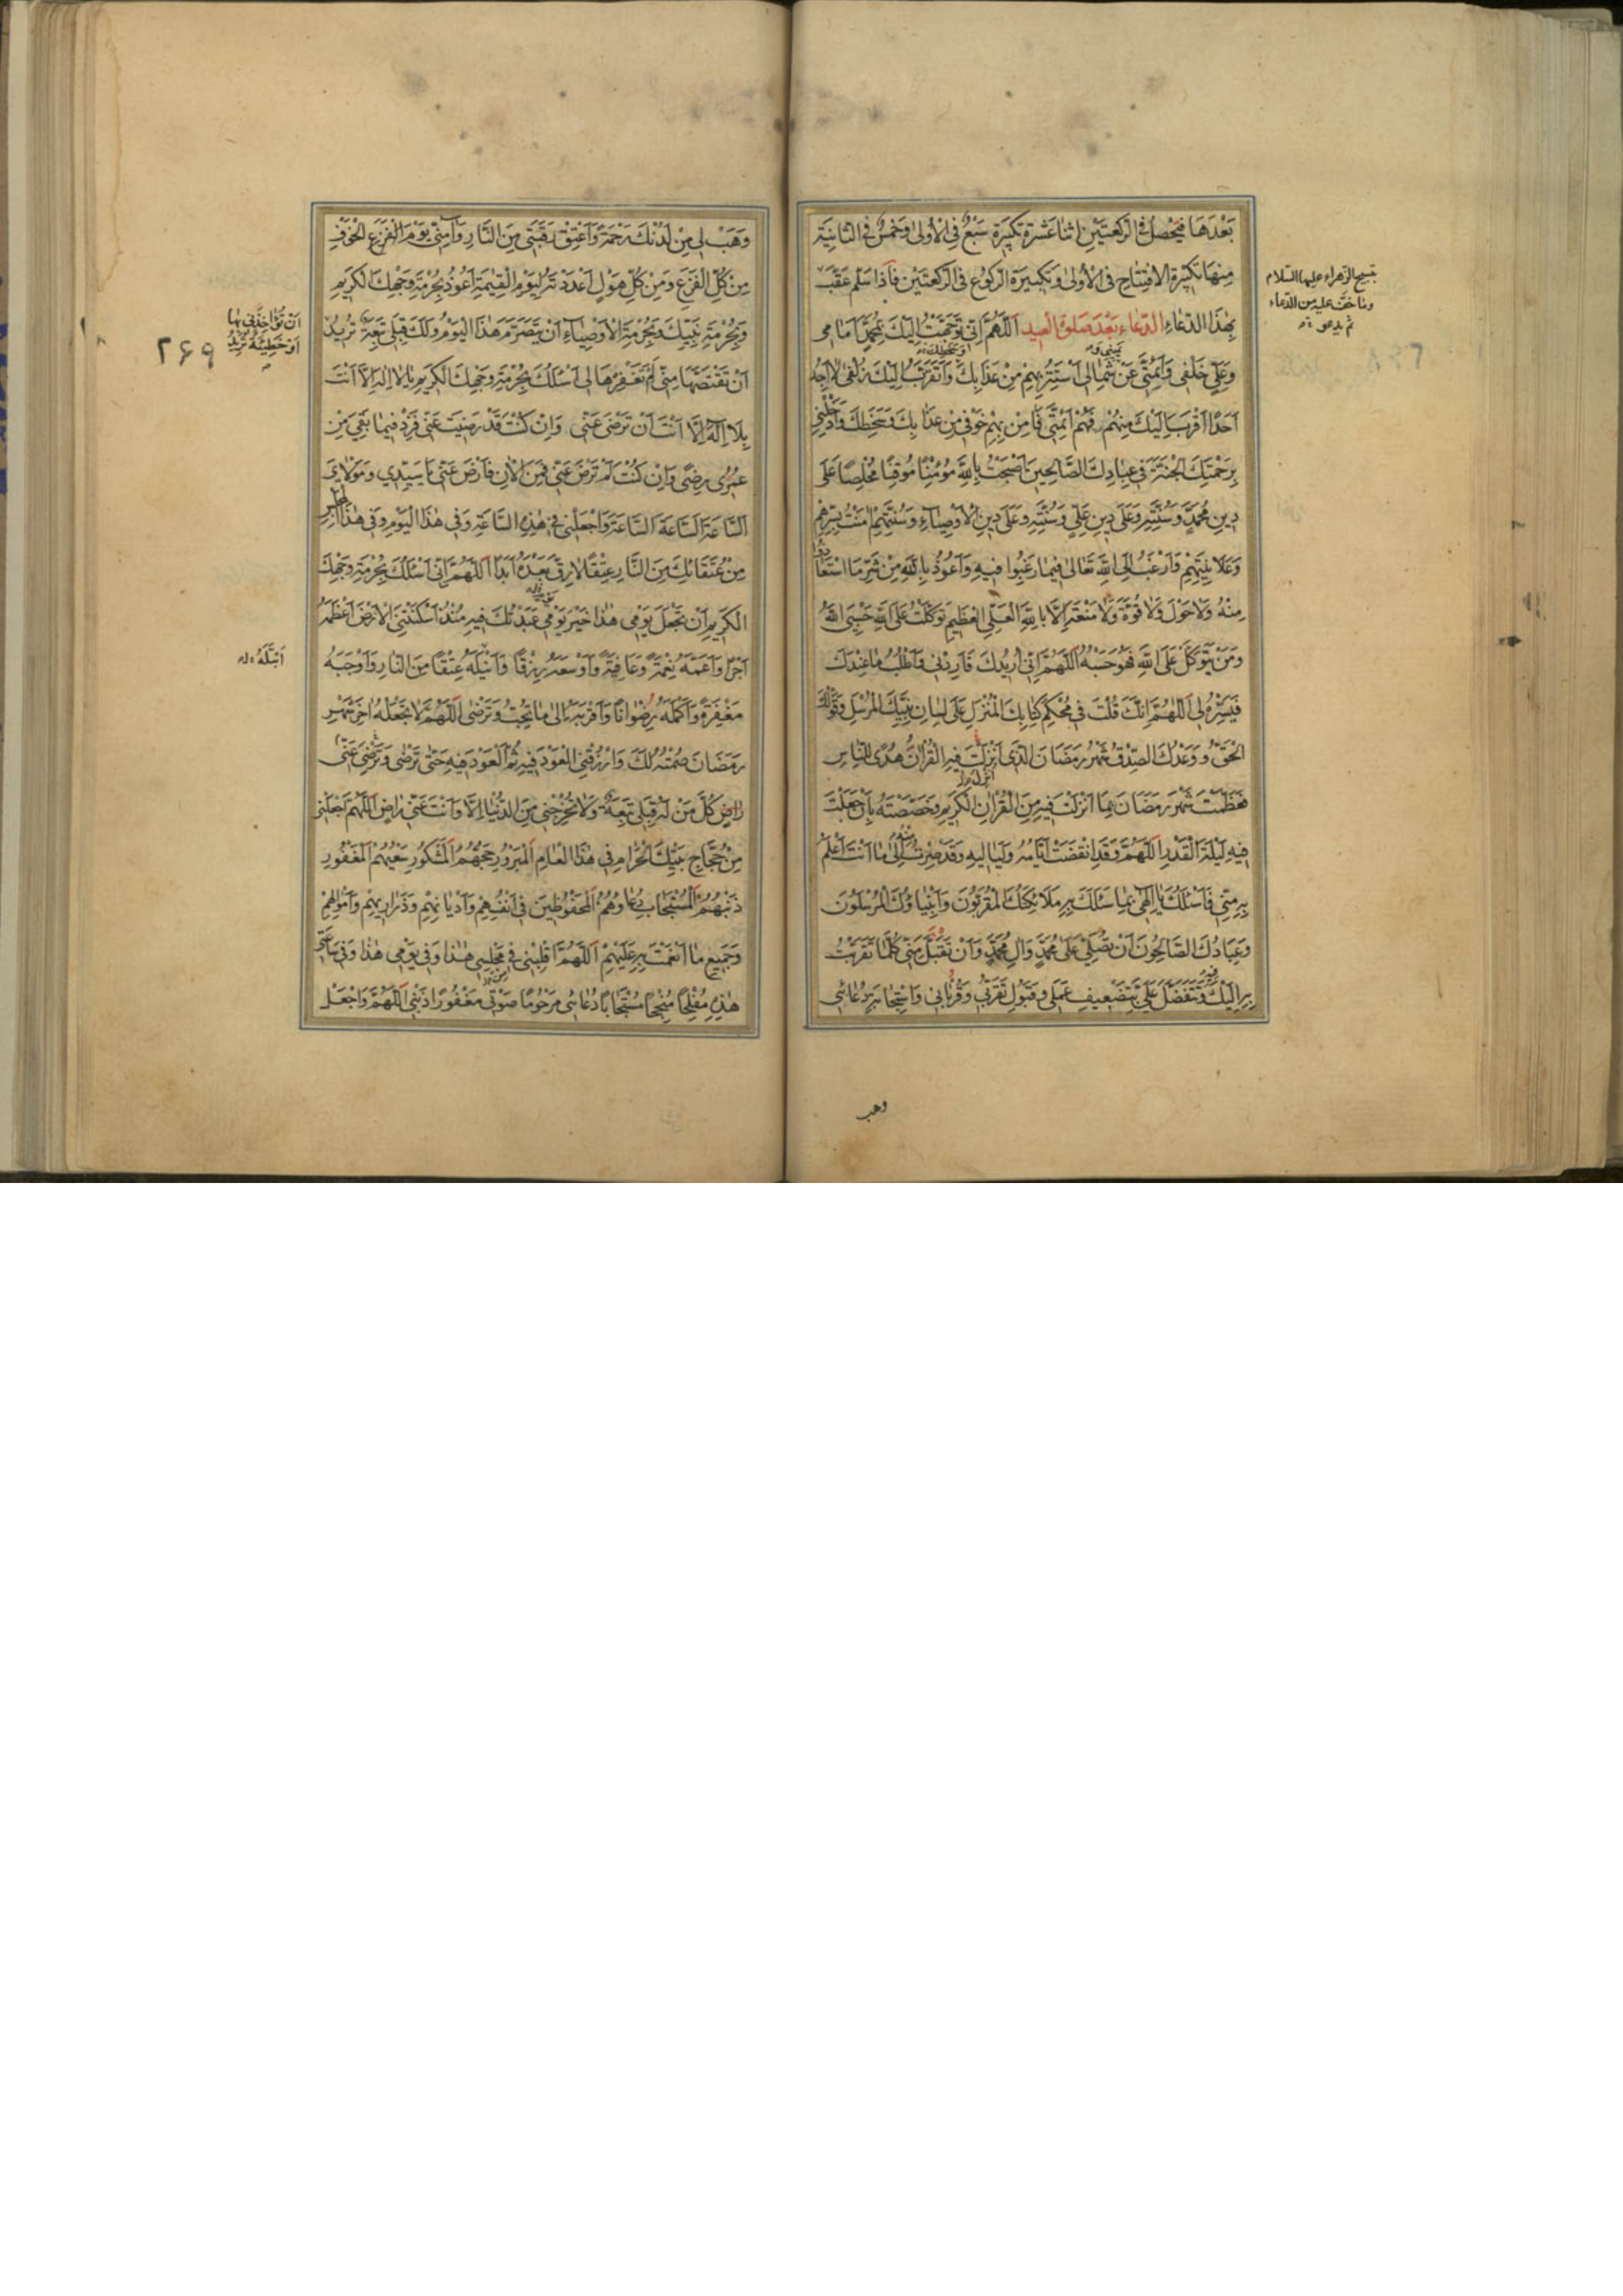 بَعْدَهَا فَيَحْصُلُ فِى الرَّكْعَتَيْنِ اثْنَا عَشْرَةَ تَكْبِيرَةً سَبْعٌ فِى الْاُولٰى وَخَمْسٌ فِى الثَّانِيَةِ
مِنْهَا تَكْبِيرَةُ الِافْتِتَاحِ فِى الْاُولٰى وَتَكْبِيرَةُ الرُّكُوعِ فِى الرَّكْعَتَيْنِ فَاِذَا سَلَّمَ عَقَّبَ
تسبيح الزهراء عليها السلام
وما خف عليه من الدعاء
ثم يدعو
بِهٰذَا الدُّعَاءِ الدُّعَاءُ بَعْدَ صَلٰوةِ الْعِيدِ اَللّٰهُمَّ اِنِّى تَوَجَّهْتُ اِلَيْكَ بِمُحَمَّدٍ اَمَامِى
وَعَلِىٍّ خَلْفِى وَاَئِمَّتِى عَنْ شِمَالِى اَسْتَتِرُ بِهِمْ مِنْ عَذَابِكَ وَاَتَقَرَّبُ اِلَيْكَ زُلْفٰى لَا اَجِدُ
اَحَدًا اَقْرَبَ اِلَيْكَ مِنْهُمْ فَهُمْ اَئِمَّتِى فَاٰمِنْ بِهِمْ خَوْفِى مِنْ عَذَابِكَ وَسَخَطِكَ وَاَدْخِلْنِى
بِرَحْمَتِكَ الْجَنَّةَ فِى عِبَادِكَ الصَّالِحِينَ اَصْبَحْتُ بِاللّٰهِ مُؤْمِنًا مُوقِنًا مُخْلِصًا عَلٰى
دِينِ مُحَمَّدٍ وَسُنَّتِهِ وَعَلٰى دِينِ عَلِىٍّ وَسُنَّتِهِ وَعَلٰى دِينِ الْاَوْصِيَاءِ وَسُنَّتِهِمْ اٰمَنْتُ بِسِرِّهِمْ
وَعَلَانِيَتِهِمْ وَاَرْغَبُ اِلَى اللّٰهِ تَعَالٰى فِيمَا رَغِبُوا فِيهِ وَاَعُوذُ بِاللّٰهِ مِنْ شَرِّ مَا اسْتَعَاذُوا
مِنْهُ وَلَا حَوْلَ وَلَا قُوَّةَ وَلَا مَنْعَةَ اِلَّا بِاللّٰهِ الْعَلِىِّ الْعَظِيمِ تَوَكَّلْتُ عَلَى اللّٰهِ حَسْبِىَ اللّٰهُ
وَمَنْ يَتَوَكَّلْ عَلَى اللّٰهِ فَهُوَ حَسْبُهُ اَللّٰهُمَّ اِنِّى اُرِيدُكَ فَاَرِدْنِى وَاَطْلُبُ مَا عِنْدَكَ
فَيَسِّرْهُ لِى اَللّٰهُمَّ اِنَّكَ قُلْتَ فِى مُحْكَمِ كِتَابِكَ الْمُنْزَلِ عَلٰى لِسَانِ نَبِيِّكَ الْمُرْسَلِ وَقَوْلُكَ
الْحَقُّ وَوَعْدُكَ الصِّدْقُ شَهْرُ رَمَضَانَ الَّذِى اُنْزِلَ فِيهِ الْقُرْاٰنُ هُدًى لِلنَّاسِ
فَعَظَّمْتَ شَهْرَ رَمَضَانَ بِمَا اَنْزَلْتَ فِيهِ مِنَ الْقُرْاٰنِ الْكَرِيمِ وَخَصَصْتَهُ بِاَنْ جَعَلْتَ
فِيهِ لَيْلَةَ الْقَدْرِ اَللّٰهُمَّ وَقَدِ انْقَضَتْ اَيَّامُهُ وَلَيَالِيهِ وَقَدْ صِرْتُ اِلٰى مَا اَنْتَ اَعْلَمُ
بِهِ مِنِّى فَاَسْئَلُكَ يَا اِلٰهِى بِمَا سَئَلَكَ بِهِ مَلَائِكَتُكَ الْمُقَرَّبُونَ وَاَنْبِيَاؤُكَ الْمُرْسَلُونَ
وَعِبَادُكَ الصَّالِحُونَ اَنْ تُصَلِّىَ عَلٰى مُحَمَّدٍ وَاٰلِ مُحَمَّدٍ وَاَنْ تَقَبَّلَ مِنِّى كُلَّمَا تَقَرَّبْتُ
بِهِ اِلَيْكَ وَتَتَفَضَّلَ عَلَىَّ بِتَضْعِيفِ عَمَلِى وَقَبُولِ تَقَرُّبِى وَقُرُبَاتِى وَاسْتِجَابَةِ دُعَائِى
وهب
وَهَبْ لِى مِنْ لَدُنْكَ رَحْمَةً وَاَعْتِقْ رَقَبَتِى مِنَ النَّارِ وَاٰمِنِّى يَوْمَ الْفَزَعِ الْخَوْفِ
مِنْ كُلِّ الْفَزَعِ وَمِنْ كُلِّ هَوْلٍ اَعْدَدْتَهُ لِيَوْمِ الْقِيٰمَةِ اَعُوذُ بِحُرْمَةِ وَجْهِكَ الْكَرِيمِ
وَبِحُرْمَةِ نَبِيِّكَ وَبِحُرْمَةِ الْاَوْصِيَاءِ اَنْ يَتَصَرَّمَ هٰذَا الْيَوْمُ وَلَكَ قِبَلِى تَبِعَةٌ تُرِيدُ
اَنْ تُؤَاخِذَنِى بِهَا
اَوْ خَطِيئَةٌ تُرِيدُ
۲۶۹
اَنْ تَقْتَصَّهَا مِنِّى لَمْ تَغْفِرْهَا لِى اَسْئَلُكَ بِحُرْمَةِ وَجْهِكَ الْكَرِيمِ يَا لَا اِلٰهَ اِلَّا اَنْتَ
بِلَا اِلٰهَ اِلَّا اَنْتَ اَنْ تَرْضٰى عَنِّى وَاِنْ كُنْتَ قَدْ رَضِيتَ عَنِّى فَزِدْ فِيمَا بَقِىَ مِنْ
عُمُرِى رِضًى وَاِنْ كُنْتَ لَمْ تَرْضَ عَنِّى فَمِنَ الْاٰنِ فَارْضَ عَنِّى يَا سَيِّدِى وَمَوْلَاىَ
اَلسَّاعَةَ اَلسَّاعَةَ اَلسَّاعَةَ وَاجْعَلْنِى فِى هٰذِهِ السَّاعَةِ وَفِى هٰذَا الْيَوْمِ وَفِى هٰذَا الْمَجْلِسِ
مِنْ عُتَقَائِكَ مِنَ النَّارِ عِتْقًا لَا رِقَّ بَعْدَهُ اَبَدًا اَللّٰهُمَّ اِنِّى اَسْئَلُكَ بِحُرْمَةِ وَجْهِكَ
الْكَرِيمِ اَنْ تَجْعَلَ يَوْمِى هٰذَا خَيْرَ يَوْمٍ عَبَدْتُكَ فِيهِ مُنْذُ اَسْكَنْتَنِى الْاَرْضَ اَعْظَمَهُ
اَجْرًا وَاَعَمَّهُ نِعْمَةً وَعَافِيَةً وَاَوْسَعَهُ رِزْقًا وَاَنْيَلَهُ عِتْقًا مِنَ النَّارِ وَاَوْجَبَهُ
اَبْتَلَهُ
مَغْفِرَةً وَاَكْمَلَهُ رِضْوَانًا وَاَقْرَبَهُ اِلٰى مَا تُحِبُّ وَتَرْضٰى اَللّٰهُمَّ لَا تَجْعَلْهُ اٰخِرَ شَهْرِ
رَمَضَانَ صُمْتُهُ لَكَ وَارْزُقْنِى الْعَوْدَ فِيهِ ثُمَّ الْعَوْدَ فِيهِ حَتّٰى تَرْضٰى وَتُرْضِىَ عَنِّى
كُلَّ مَنْ لَهُ قِبَلِى تَبِعَةٌ وَلَا تُخْرِجْنِى مِنَ الدُّنْيَا اِلَّا وَاَنْتَ عَنِّى رَاضٍ اَللّٰهُمَّ اجْعَلْنِى
مِنْ حُجَّاجِ بَيْتِكَ الْحَرَامِ فِى هٰذَا الْعَامِ الْمَبْرُورِ حَجُّهُمُ الْمَشْكُورِ سَعْيُهُمُ الْمَغْفُورِ
ذَنْبُهُمُ الْمُسْتَجَابِ دُعَاؤُهُمُ الْمَحْفُوظِينَ فِى اَنْفُسِهِمْ وَاَدْيَانِهِمْ وَذَرَارِيهِمْ وَاَمْوَالِهِمْ
وَجَمِيعِ مَا اَنْعَمْتَ بِهِ عَلَيْهِمْ اَللّٰهُمَّ اقْلِبْنِى فِى مَجْلِسِى هٰذَا وَفِى يَوْمِى هٰذَا وَفِى سَاعَتِى
هٰذِهِ مُفْلِحًا مُنْجِحًا مُسْتَجَابًا دُعَائِى مَرْحُومًا صَوْتِى مَغْفُورًا ذَنْبِى اَللّٰهُمَّ وَاجْعَلْ